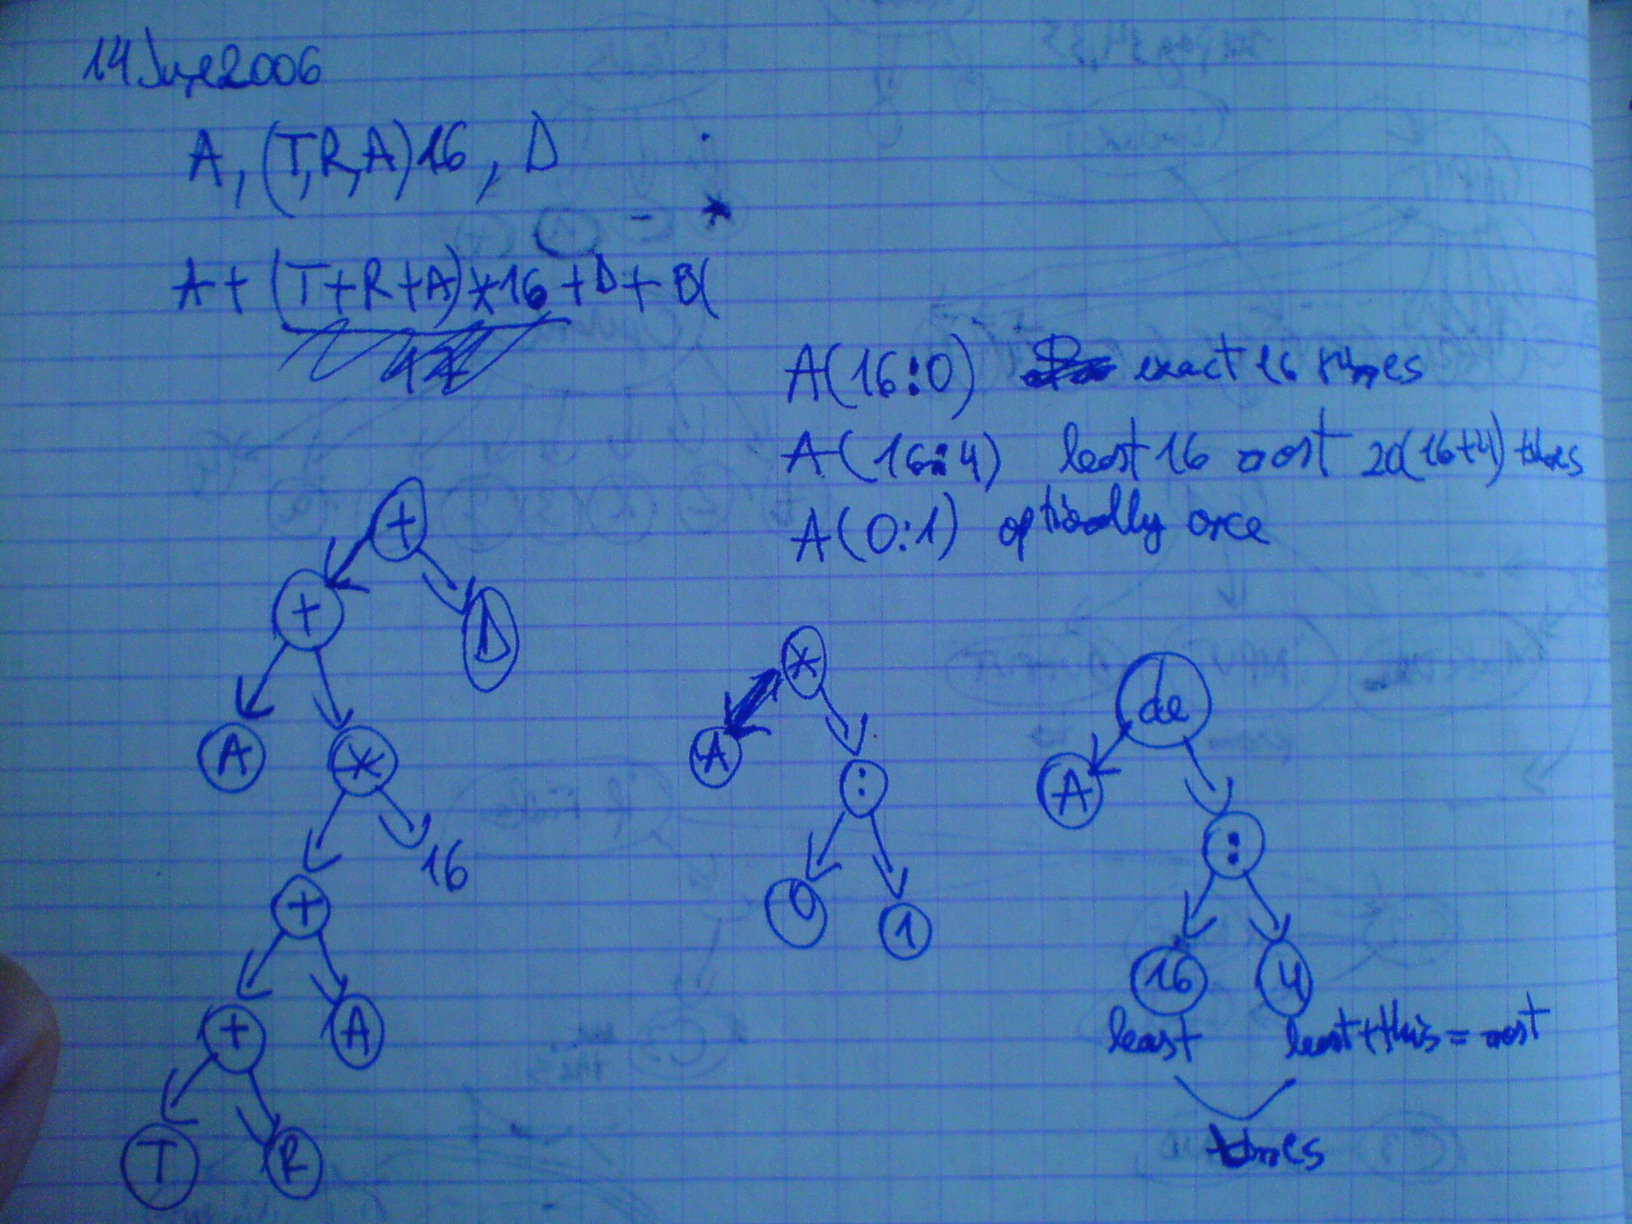 14 June 2006
A, (T,R,A)16, D
A+(T+R+A)*16+D+B(
A(16:0) exact 16 times
A(16:4) least 16 most 20(16+4) times
A(0:1) optionally once
+
+
D
A
*
16
+
+
A
T
R
*
A
:
0
1
A
:
16
4
least
least+this=most
times